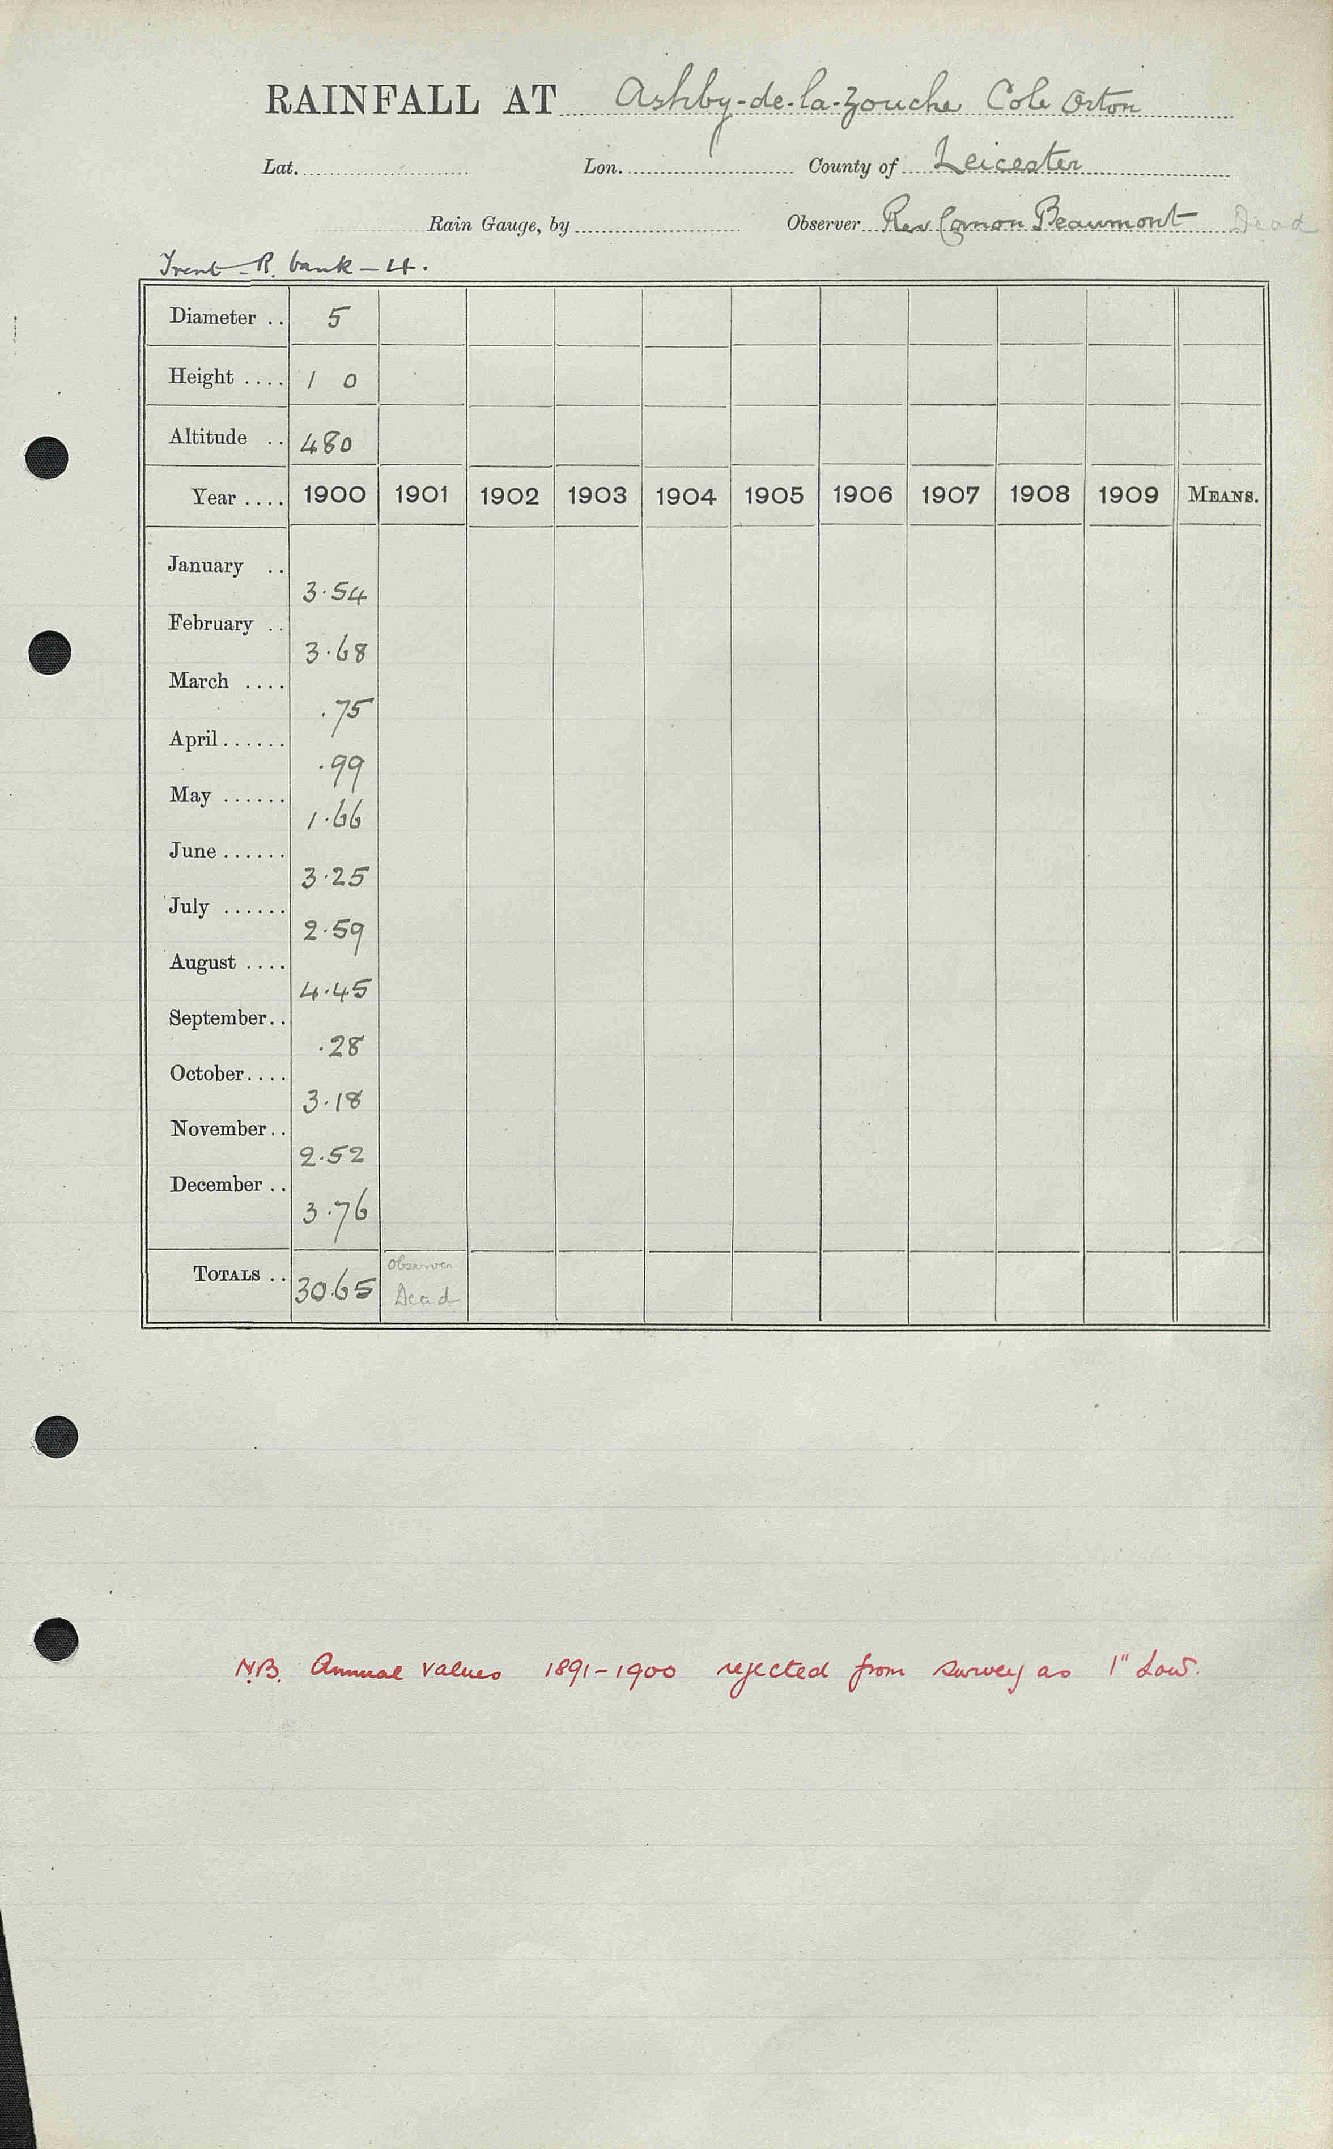 RAINFALL AT Ashby-de-la-Zouche Cole Orton
Lat. Lon. County of Leicester
Rain Gauge, by Observer Rev Canon Beaumont Dead
Trent - R. bank - 4.
Diameter .. 5
Height .... 1 0
Altitude .. 480
Year .... 1900 1901 1902 1903 1904 1905 1906 1907 1908 1909 MEANS.
January .. 3.54
February .. 3.68
March .... .75
April...... .99
May ...... 1.66
June ...... 3.25
July ...... 2.59
August .... 4.45
September.. .28
October.... 3.18
November.. 2.52
December .. 3.76
TOTALS .. 30.65 Observer Dead
N.B. Annual values 1891-1900 rejected from survey as 1" low.